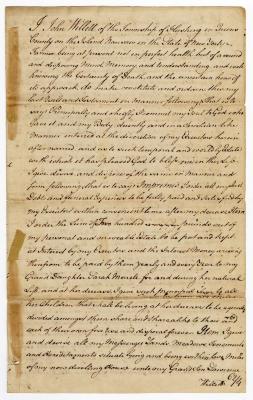 I, John Willett of the Township of Flushing in Queens
County on the Island Nassau in the State of New York
Farmer being at present not in perfect health, but of a sound
and disposing Mind, Memory and understanding, and well
knowing the Certainty of Death, and the uncertain hour of
its approach, do make constitute and ordain this my
last Will and Testament in Manner following, That is to
say, Principally and chiefly, I commend my Soul to God who
gave it and my Body
Manner interred at the discretion of my Executors herein
after named and as to such temporal and worldly Estate
with which it has pleased God to bless me in this Life
I give devise and dispose of the same in Manner and
form following, that is to say Imprimis I order all my just
Debts and funeral Expences to be fully paid and satisfied by
my Executors within convenient time after my decease Item
I order the Sum of Two hundred pounds out of
my personal and moveable Estate to be put and kept
at Interest by my Executors and the Interest Money arising
therefrom to be paid by them yearly and every Year to my
Grand Daughter Sarah Morrell for and during her natural
Life, and at her decease I give such principal Sum to all
her Children that shall be living at her decease to be equally
divided amongst them share and share alike to them and
each of them free and dispose forever. Item I give
and devise all my Messuage Lands Meadows Tenements
and Hereditaments situate lying and being within two Miles
of my now dwelling House unto my Grand Son Lawrence
Willett